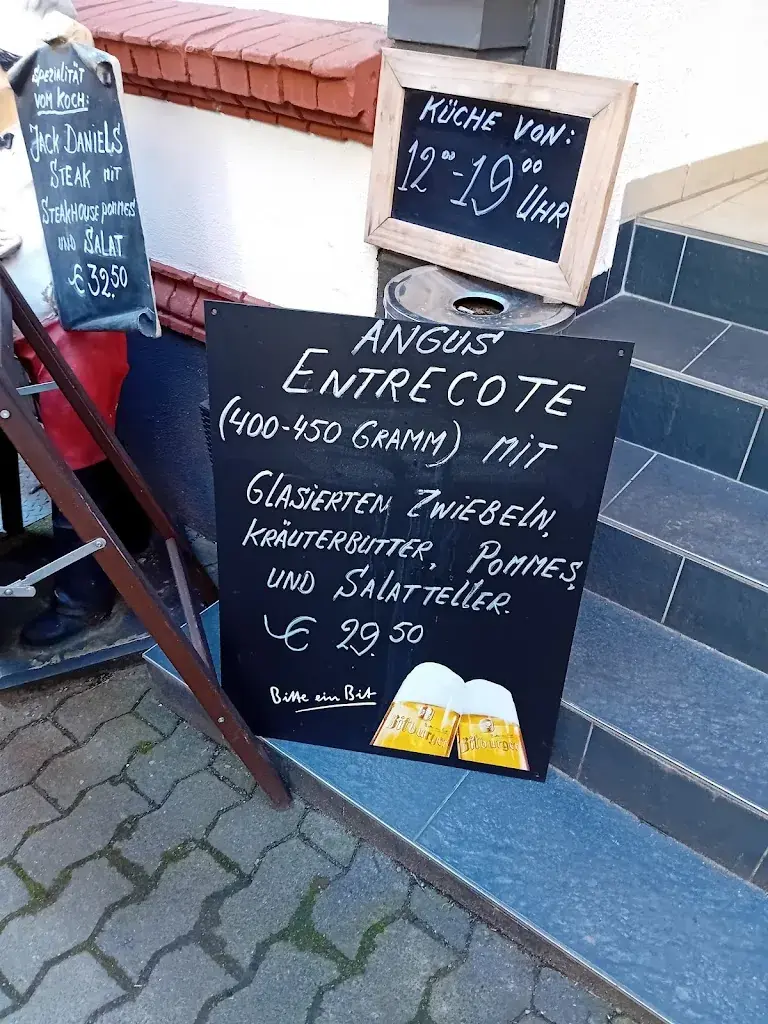 SPEZIALITÄT
VOM KOCH:
JACK DANIELS
STEAK MIT
STEAKHOUSE POMMES
UND SALAT
€ 32.50
KÜCHE VON:
12°° - 19°° UHR
ANGUS
ENTRECOTE
(400-450 GRAMM) MIT
GLASIERTEN ZWIEBELN,
KRÄUTERBUTTER, POMMES,
UND SALATTELLER.
€ 29.50
Bitte ein Bit
Bitburger Bitburger